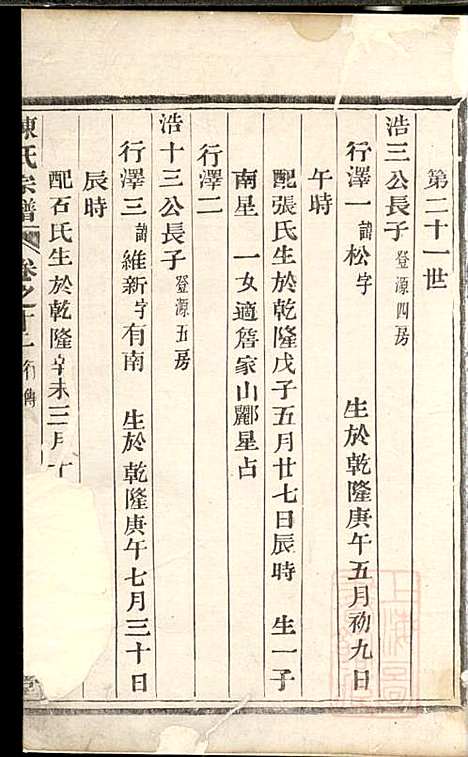 第二十一世
浩三公長子 登源四房
行澤一 諱松字 生於乾隆庚午五月初九日
午時
配張氏生於乾隆戊子五月廿七日辰時 生一子
南星 一女適詹家山酈星占
行澤二
浩十三公長子 登源五房
行澤三 諱維新字有南 生於乾隆庚午七月三十日
辰時
配石氏生於乾隆辛未三月
陳氏宗譜 卷之十二 行傳